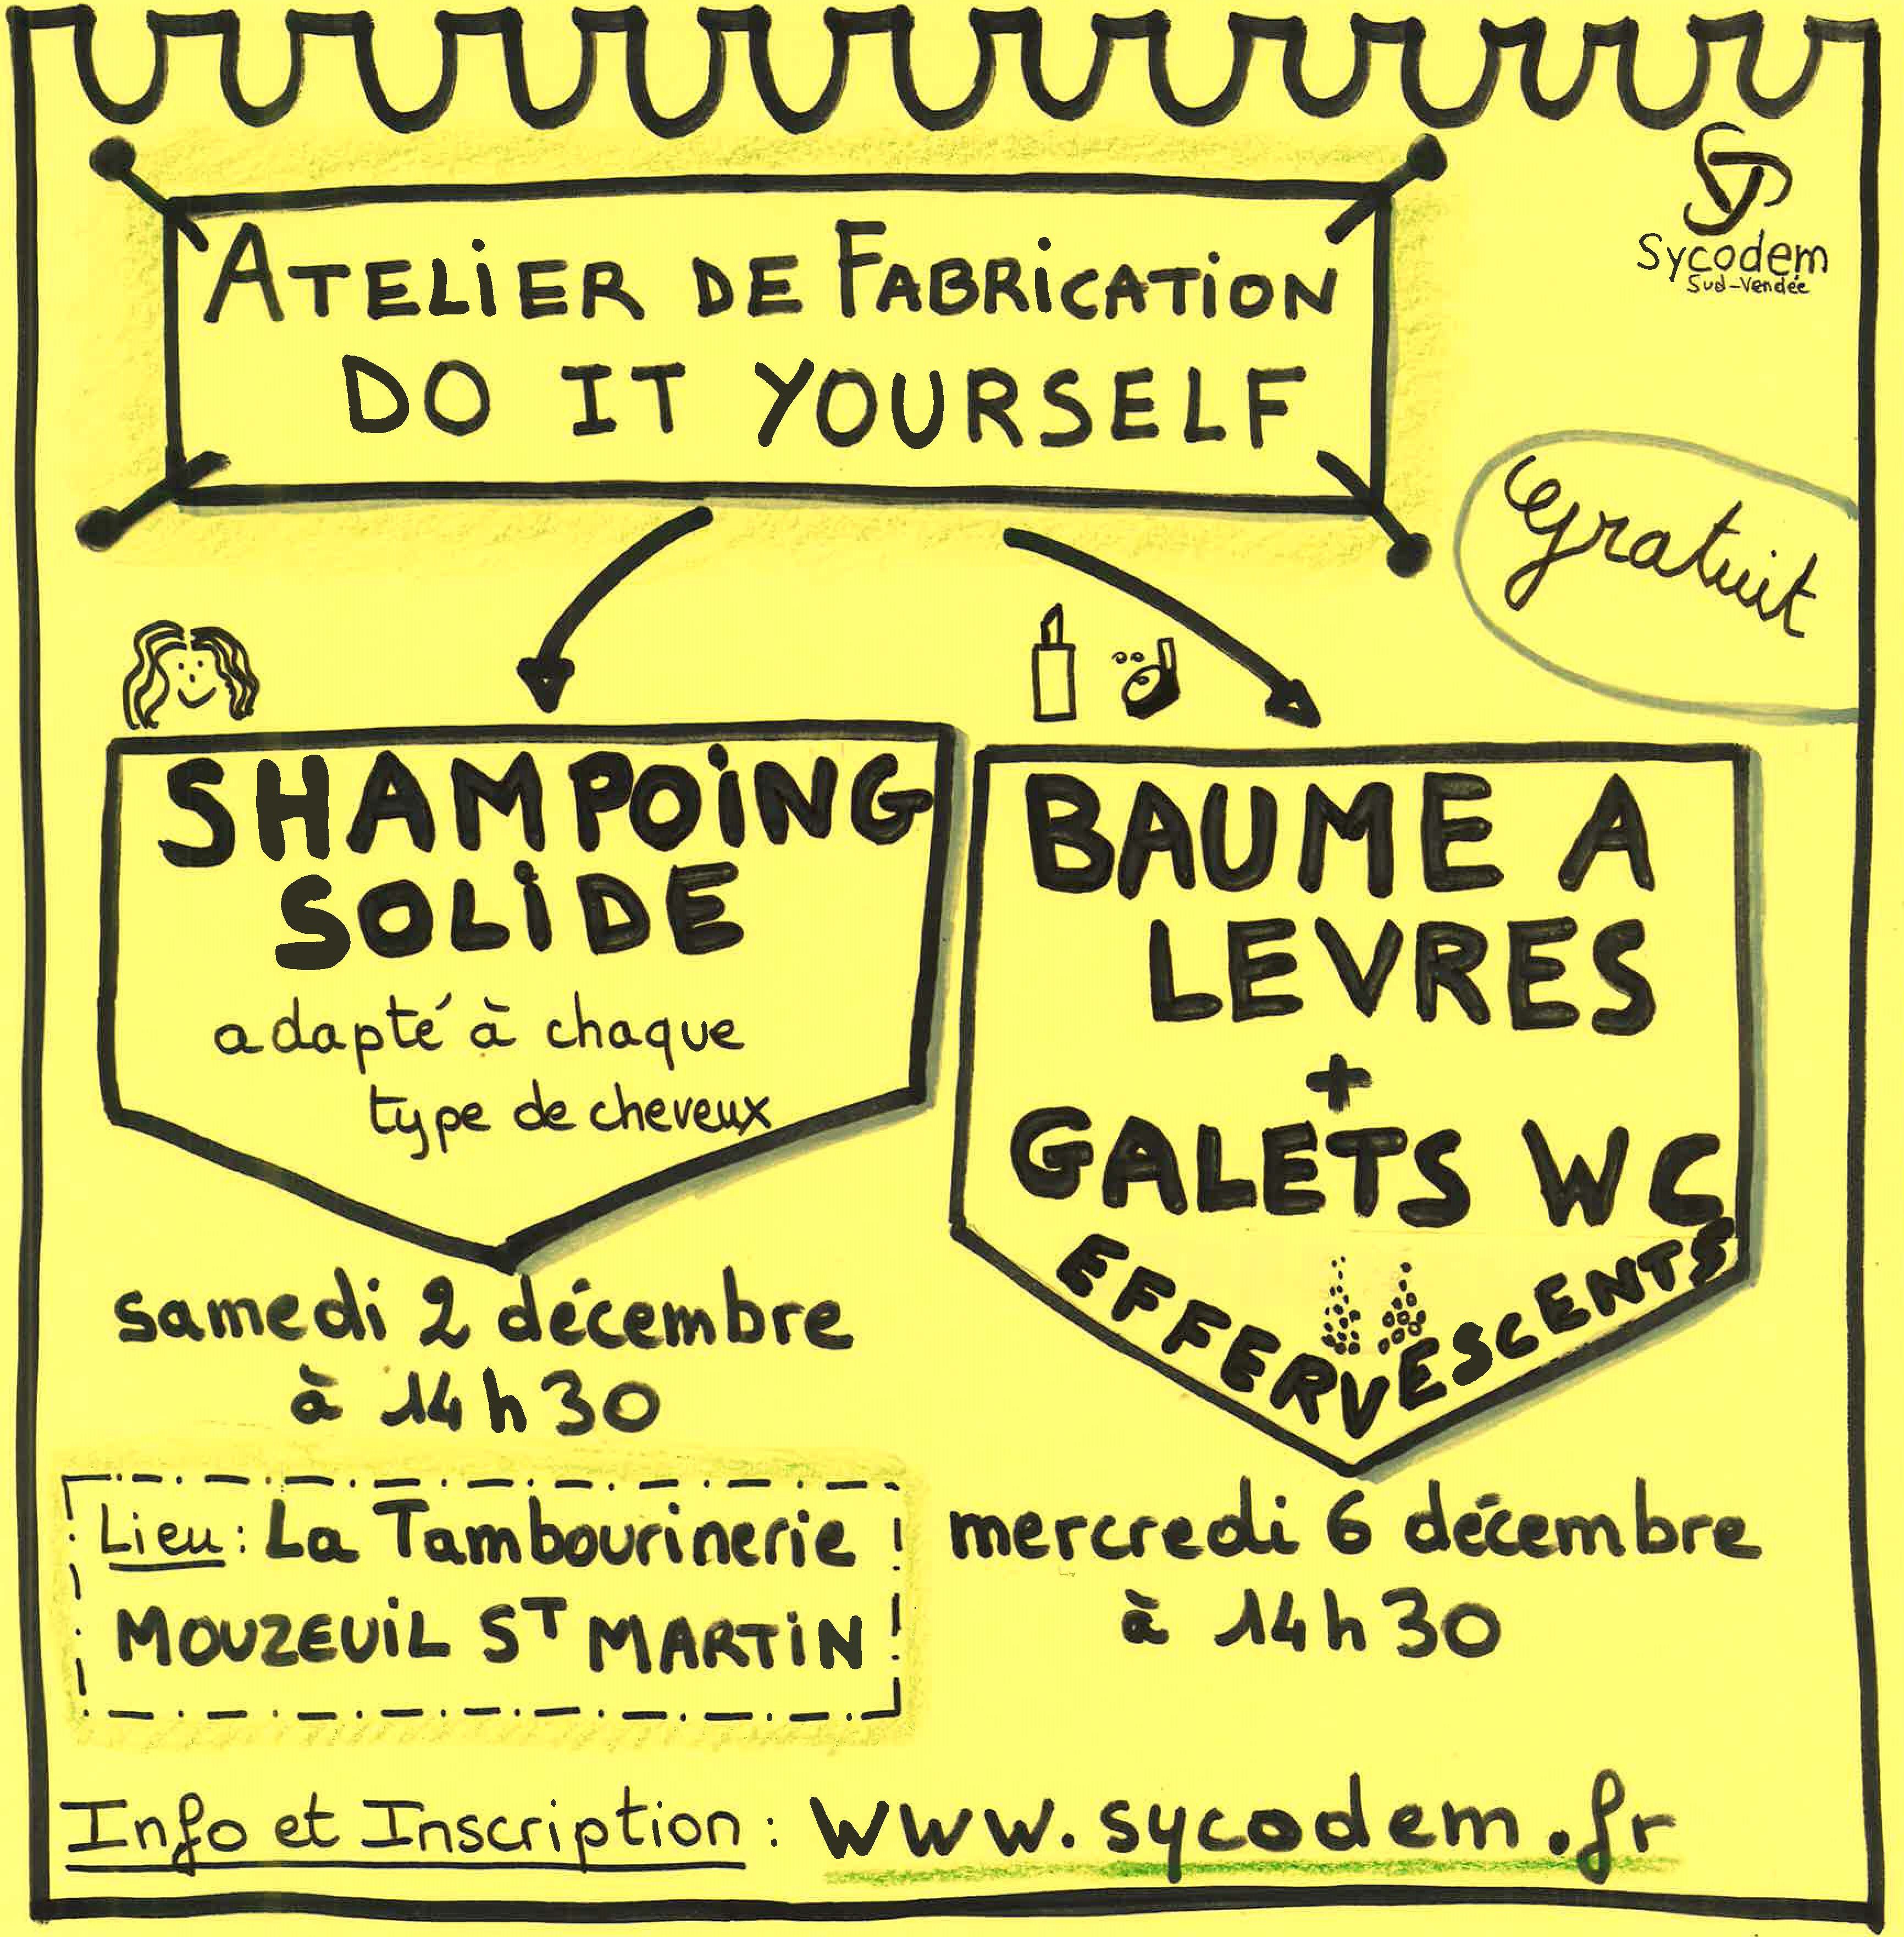 Sycodem
Sud-Vendée
ATELiER DE FABRiCATiON
DO IT YOURSELF
Gratuit
SHAMPOiNG
SOLiDE
adapté à chaque
type de cheveux
samedi 2 décembre
à 14h30
BAUME A
LEVRES
+
GALETS WC
EFFERVESCENTS
mercredi 6 décembre
à 14h30
Lieu : La Tambourinerie
MOUZEUiL ST MARTiN
Info et Inscription : www.sycodem.fr